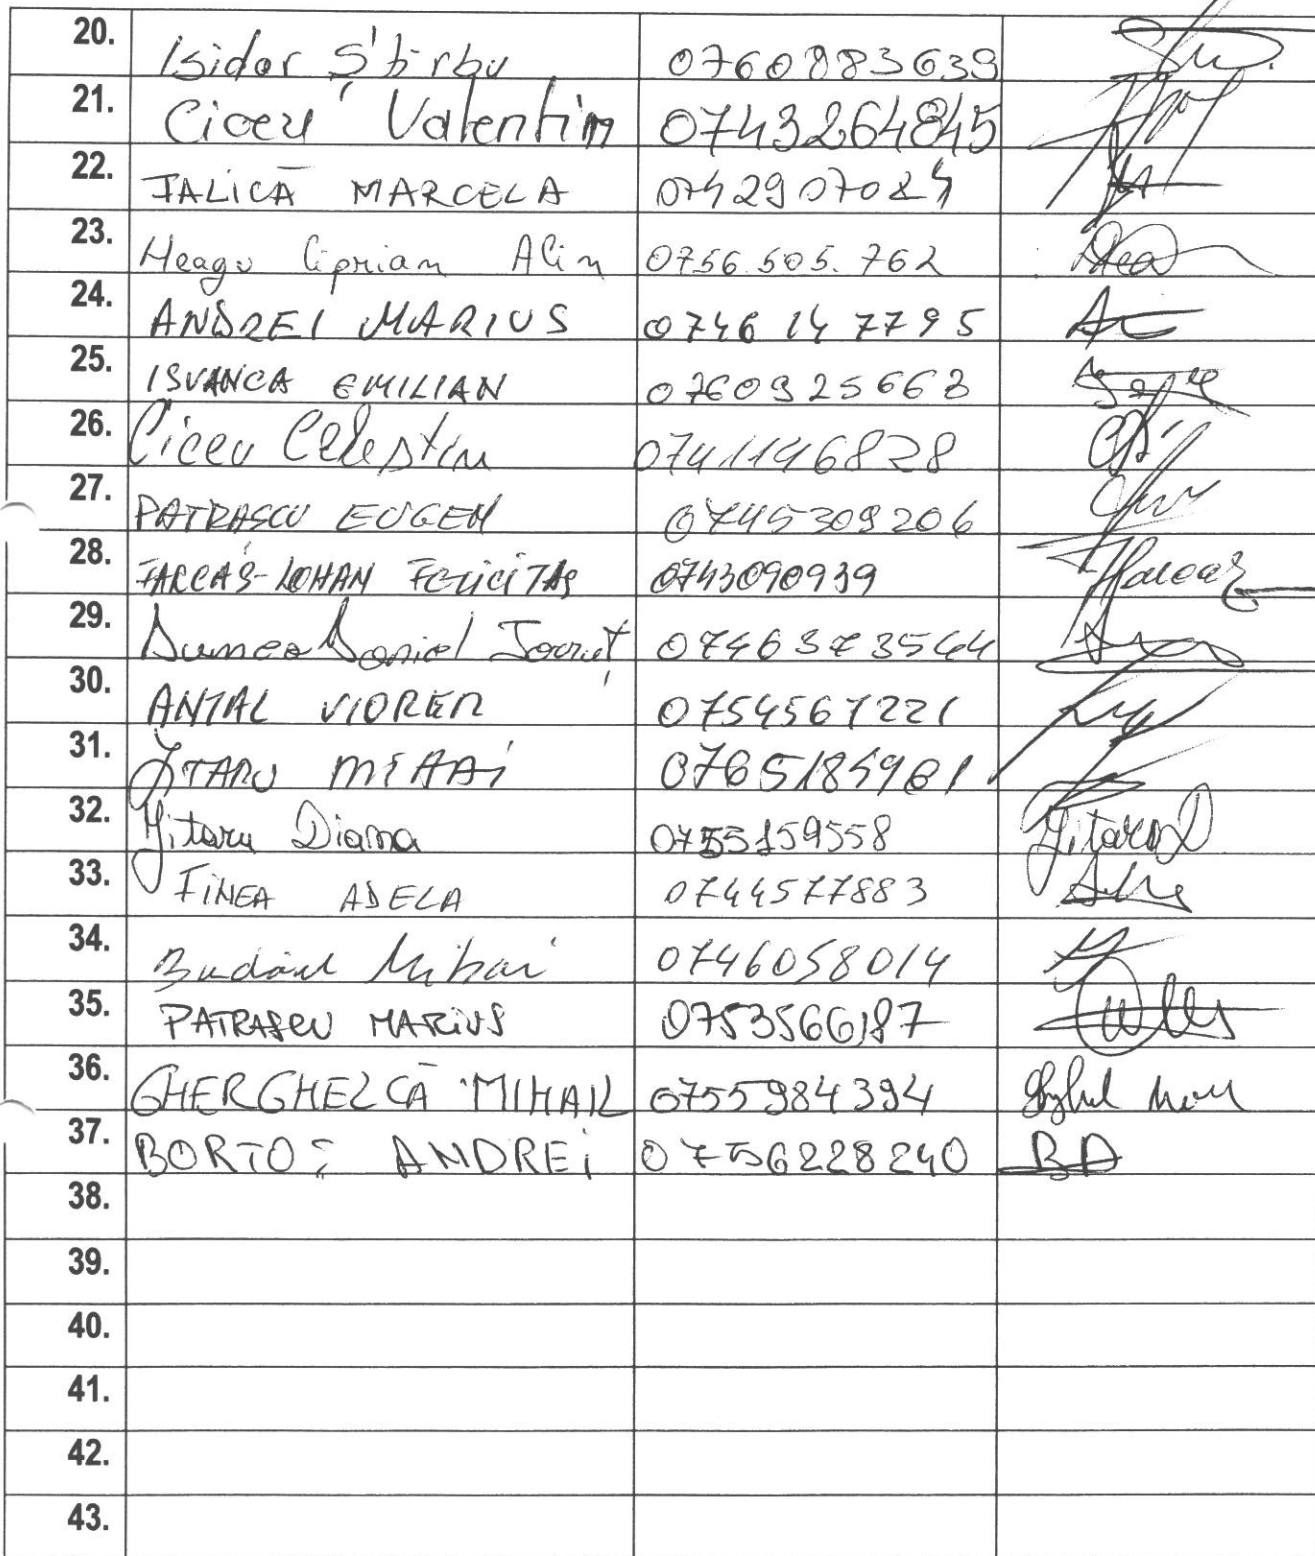 20. Isidor Știrbu 0760883639
21. Ciceu Valentin 0743264845
22. JALICĂ MARCELA 0742907084
23. Neagu Ciprian Alin 0756.505.762
24. ANDREI MARIUS 0746147795
25. ISVANCA EMILIAN 0760925663
26. Ciceu Celestin 0741146828
27. PATRASCU EUGEN 0745309206
28. FARCAȘ-LOHAN FELICITAS 0743090939
29. Dumea Daniel 
30. ANTAL VIOREL 0754567221
31. JITARU MIHAI 0765184961
32. Jitaru Diana 0755159558 Jitaru D
33. FINEA ADELA 0744577883
34. Mihai 0746058014
35. PATRASCU MARIUS 0753566187
36. GHERGHELCĂ MIHAIL 0755984394
37. BORTOȘ ANDREI 0756228240 BA
38.
39.
40.
41.
42.
43.